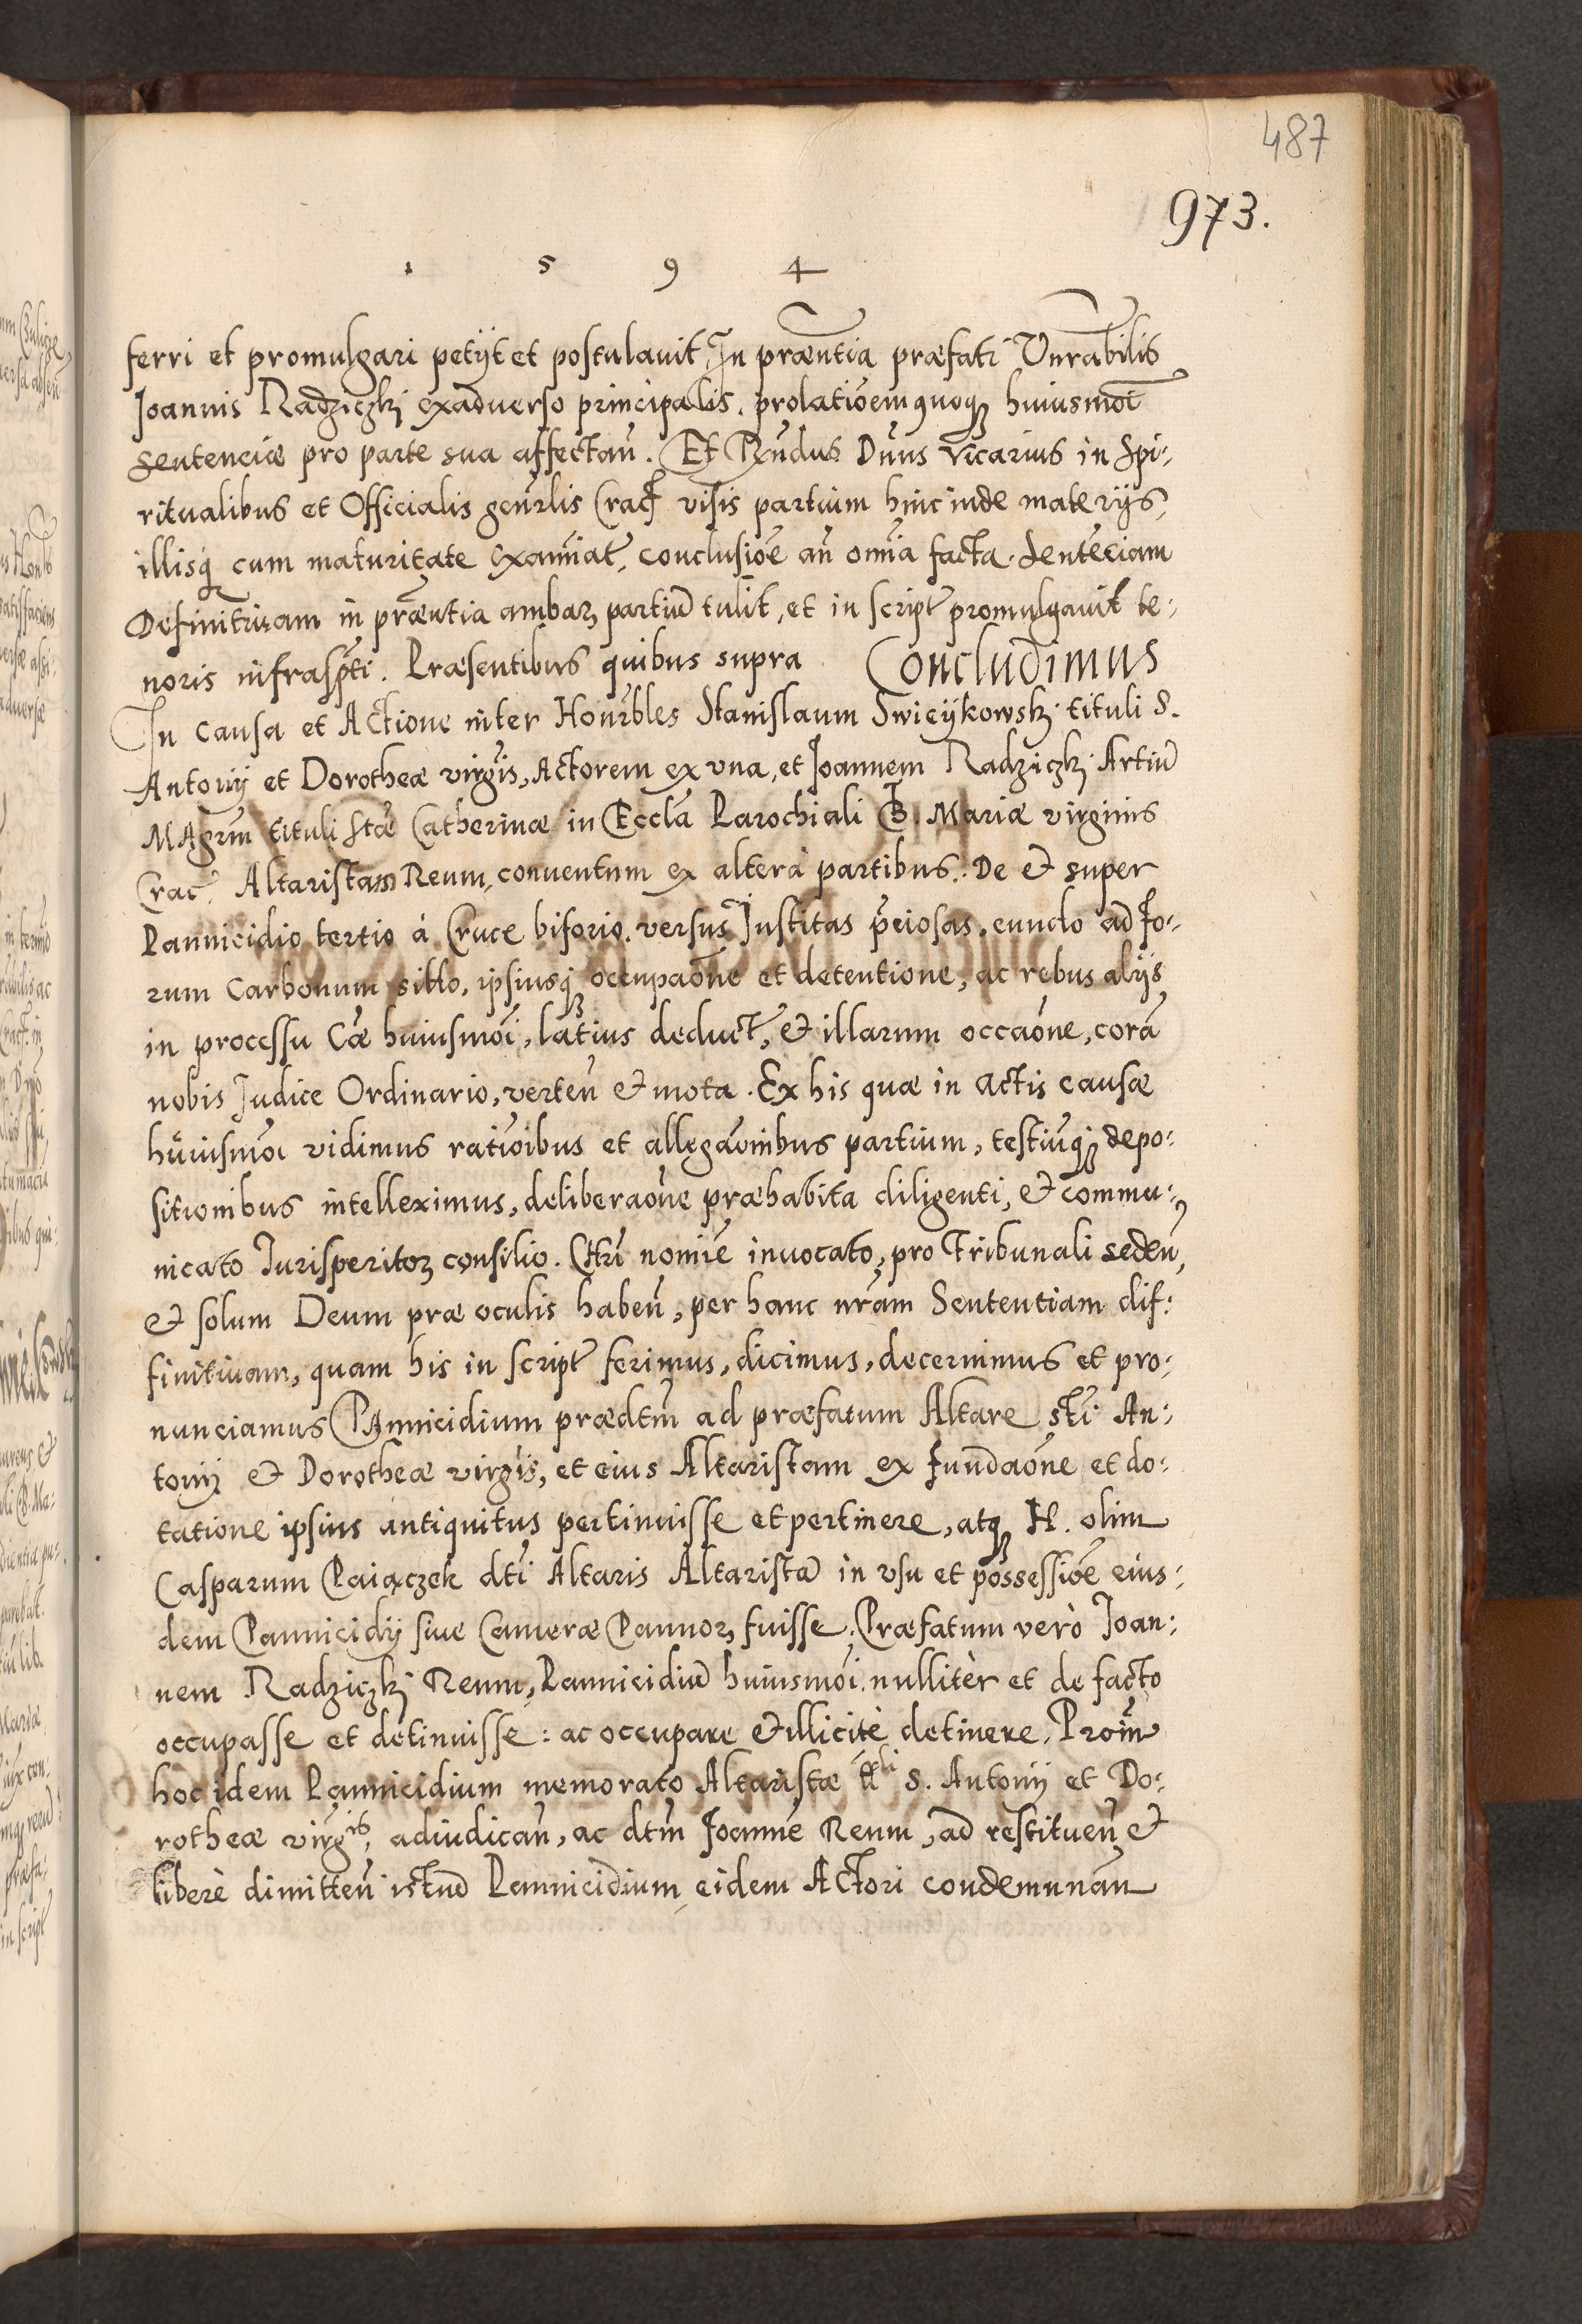 487
973.
1 5 9 4
ferri et promulgari petijt et postulauit, In præntia præfati Vnrabilis
Joannis Radziczkj exaduerso principalis. prolationemquoqꝫ huiusmoi
sentenciæ pro parte sua affectan̄. Et Rn̄dus Dn̄us Vicarius in Spi:
ritualibus et Officialis gen̄rlis Crac̄ visis partium hinc inde materijs,
illisqꝫ cum maturitate examiat̄, conclusiōe an̄ omīa facta. Sentēciam
Definitiuam in præntia ambaꝝ partiū tulit, et in script̄ promulgauit te:
noris infraspti. Præsentibus quibus supra Concludimus
In causa et Actione inter Honrbles Stanislaum Swicijkowskj tituli S.
Antonij et Dorotheæ virgīs, Actorem ex vna, et Joannem Radziczkj Artiū
Magrm̄ tituli Stæ Catherinæ in Eccl̄a Parochiali B. Mariæ virginis
Crac̄ Altaristam Reum, conuentum ex altera partibus. De et super
Pannicidio tertio à Cruce biforio. versus Institas pēiosas, eundo ad Fo:
rum Carbonum sitto, ipsiusqꝫ occupaōne et detentione, ac rebus alijs
in processu Cæ huiusmōi, latius deduct̄, et illarum occaōne, corā
nobis Judice Ordinario, verten̄ et mota. Ex his quæ in actis causæ
huiusmōi vidimus ratiōibus et allegaōnibus partium, testiūqꝫ depo:
sitionibus intelleximus, deliberaōne præhabita diligenti, et commu:
nicato Jurisperitoꝝ consilio. Chri nomīe inuocato, pro Tribunali seden̄,
et solum Deum præ oculis haben̄, per hanc nr̄am Sententiam dif:
finitiuam, quam his in script̄ ferimus, dicimus, decernimus et pro:
nunciamus Pannicidium prædtm̄ ad præfatum Altare sti An:
tonij et Dorotheæ virgīs, et eius Altaristam ex fundaōne et do:
tatione ipsius antiquitus pertinuisse et pertinere, atqꝫ H. olim
Casparum Paiączek dti Altaris Altaristā in vsu et possessiōe eius:
dem Pannicidij siue Cameræ Pannoꝝ fuisse. Præfatum verò Joan:
nem Radziczkj Reum, Pannicidiū huiusmōi nullitèr et de facto
occupasse et detinuisse: ac occupare et illicitè detinere, Proin̄
hoc idem Pannicidium memorato Altaristæ ttli S. Antonij et Do:
rotheæ virgis, adiudican̄, ac dtm̄ Joannē Reum, ad restituen̄ et
liberè dimitten̄ istud Pannicidium eidem Actori condemnan̄